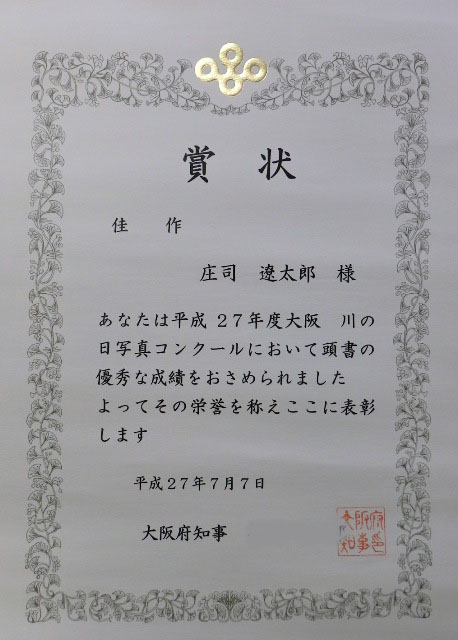 賞 状
佳 作
庄司 遼太郎 様
あなたは平成27年度大阪 川の
日写真コンクールにおいて頭書の
優秀な成績をおさめられました
よってその栄誉を称えここに表彰
します
平成27年7月7日
大阪府知事